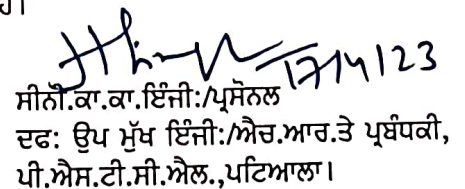 ਹੈ।
17/4/23
ਸੀਨੀ.ਕਾ.ਕਾ.ਇੰਜੀ:/ਪ੍ਰਸੋਨਲ
ਦਫ: ਉਪ ਮੁੱਖ ਇੰਜੀ:/ਐਚ.ਆਰ.ਤੇ ਪ੍ਰਬੰਧਕੀ,
ਪੀ.ਐਸ.ਟੀ.ਸੀ.ਐਲ.,ਪਟਿਆਲਾ।